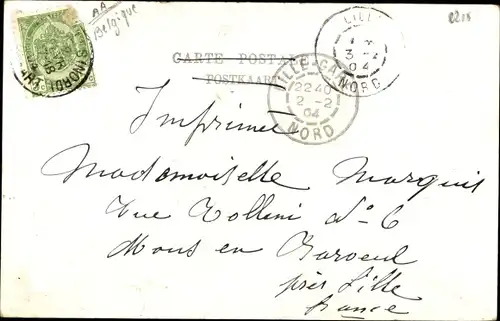 AA
Belgique
2215
CARTE POSTALE
POSTKAART
LILLE
3 -2
04
NORD
LILLE-GARE
22 40
2 -2
04
NORD
(NORD)
Imprimé
Mademoiselle Marquis
Rue Rollini No 6
Mons en Baroeul
près Lille
France